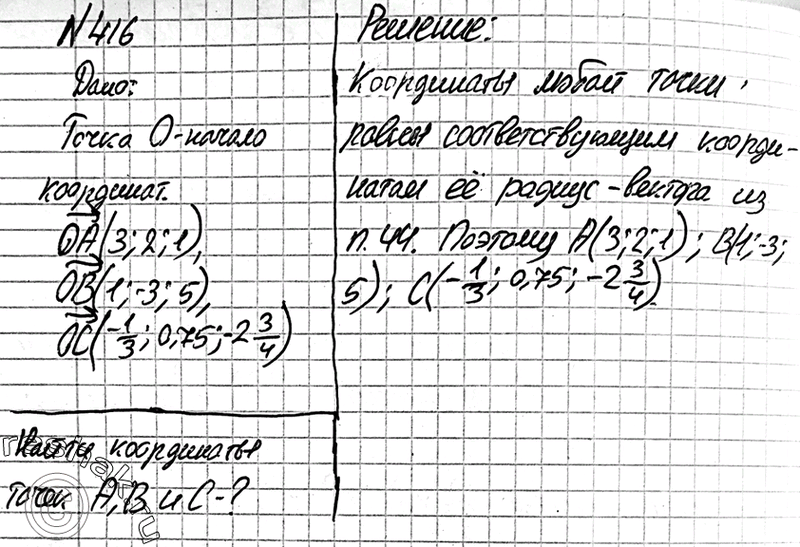 N 416
Дано:
Точка О-начало
координат.
OA(3; 2; 1),
OB(1; -3; 5),
OC(-1/3; 0,75; -2 3/4)
Найти координаты
точек А, В и С-?
Решение:
Координаты любой точки
равны соответствующим коорди-
натам её радиус-вектора из
п. 44. Поэтому А(3; 2; 1); В(1; -3;
5); С(-1/3; 0,75; -2 3/4)
reshak.ru